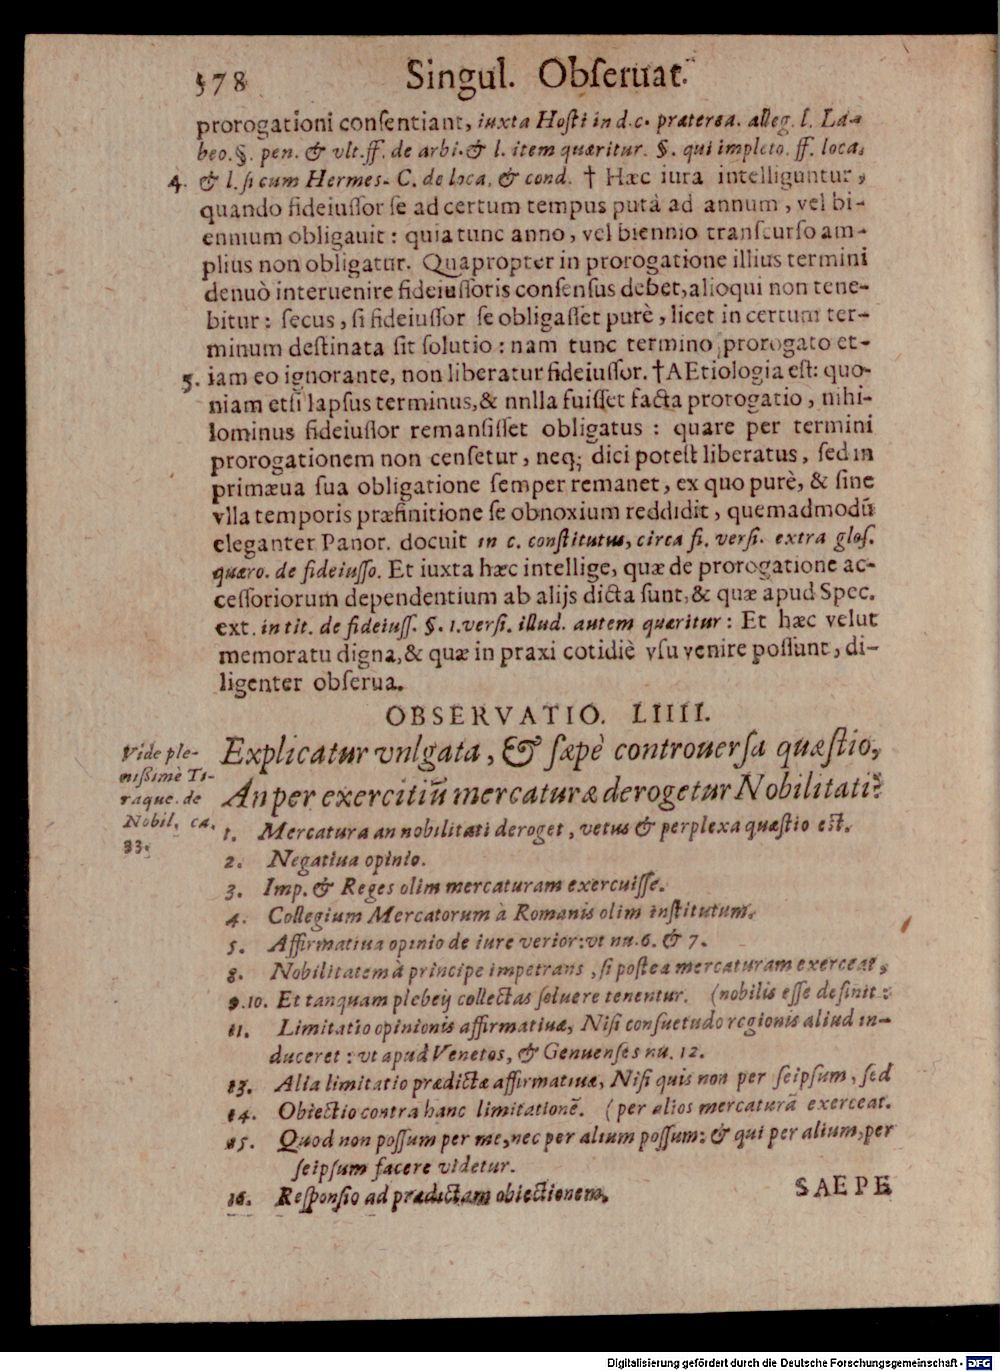 578 Singul. Obſeruat.
prorogationi conſentiant, iuxta Hoſti in d.c. præterea. alleg. l. La-
beo. §. pen. & vlt. ff. de arbi. & l. item quæritur. §. qui impleto. ff. loca.
4. & l. ſi cum Hermes. C. de loca. & cond. † Hæc iura intelliguntur,
quando fideiuſſor ſe ad certum tempus putà ad annum, vel bi-
ennium obligauit: quia tunc anno, vel biennio tranſcurſo am-
plius non obligatur. Quapropter in prorogatione illius termini
denuò interuenire fideiuſſoris conſenſus debet, alioqui non tene-
bitur: ſecus, ſi fideiuſſor ſe obligaſſet purè, licet in certum ter-
minum deſtinata ſit ſolutio: nam tunc termino prorogato et-
5. iam eo ignorante, non liberatur fideiuſſor. † AEtiologia eſt: quo-
niam etſi lapſus terminus, & nnlla fuiſſet facta prorogatio, nihi-
lominus fideiuſſor remanſiſſet obligatus: quare per termini
prorogationem non cenſetur, neq; dici poteſt liberatus, ſed in
primæua ſua obligatione ſemper remanet, ex quo purè, & ſine
vlla temporis præfinitione ſe obnoxium reddidit, quemadmodū
eleganter Panor. docuit in c. conſtitutus, circa fi. verſi. extra gloſ.
quæro. de fideiuſſo. Et iuxta hæc intellige, quæ de prorogatione ac-
ceſſoriorum dependentium ab alijs dicta ſunt, & quæ apud Spec.
ext. in tit. de fideiuſſ. §. 1. verſi. illud. autem quæritur: Et hæc velut
memoratu digna, & quæ in praxi cotidiè vſu venire poſſunt, di-
ligenter obſerua.
OBSERVATIO. LIIII.
Vide ple-
niſsimè Ti-
raque. de
Nobil. ca.
33.
Explicatur vnlgata, & ſæpè controuerſa quæſtio,
An per exercitiū mercaturæ derogetur Nobilitati?
1. Mercatura an nobilitati deroget, vetus & perplexa quæſtio eſt.
2. Negatiua opinio.
3. Imp. & Reges olim mercaturam exercuiſſe.
4. Collegium Mercatorum à Romanis olim inſtitutum.
5. Affirmatiua opinio de iure verior: vt nu. 6. & 7.
8. Nobilitatem à principe impetrans, ſi poſtea mercaturam exerceat,
9.10. Et tanquam plebeij collectas ſoluere tenentur. (nobilis eſſe deſinit:
11. Limitatio opinionis affirmatiuæ, Niſi conſuetudo regionis aliud in-
duceret: vt apud Venetos, & Genuenſes nu. 12.
13. Alia limitatio prædictæ affirmatiuæ, Niſi quis non per ſeipſum, ſed
14. Obiectio contra hanc limitationē. (per alios mercaturā exerceat.
15. Quod non poſſum per me, nec per alium poſſum: & qui per alium, per
ſeipſum facere videtur.
16. Reſponſio ad prædictam obiectionem.
SAEPE
Digitalisierung gefördert durch die Deutsche Forschungsgemeinschaft - DFG